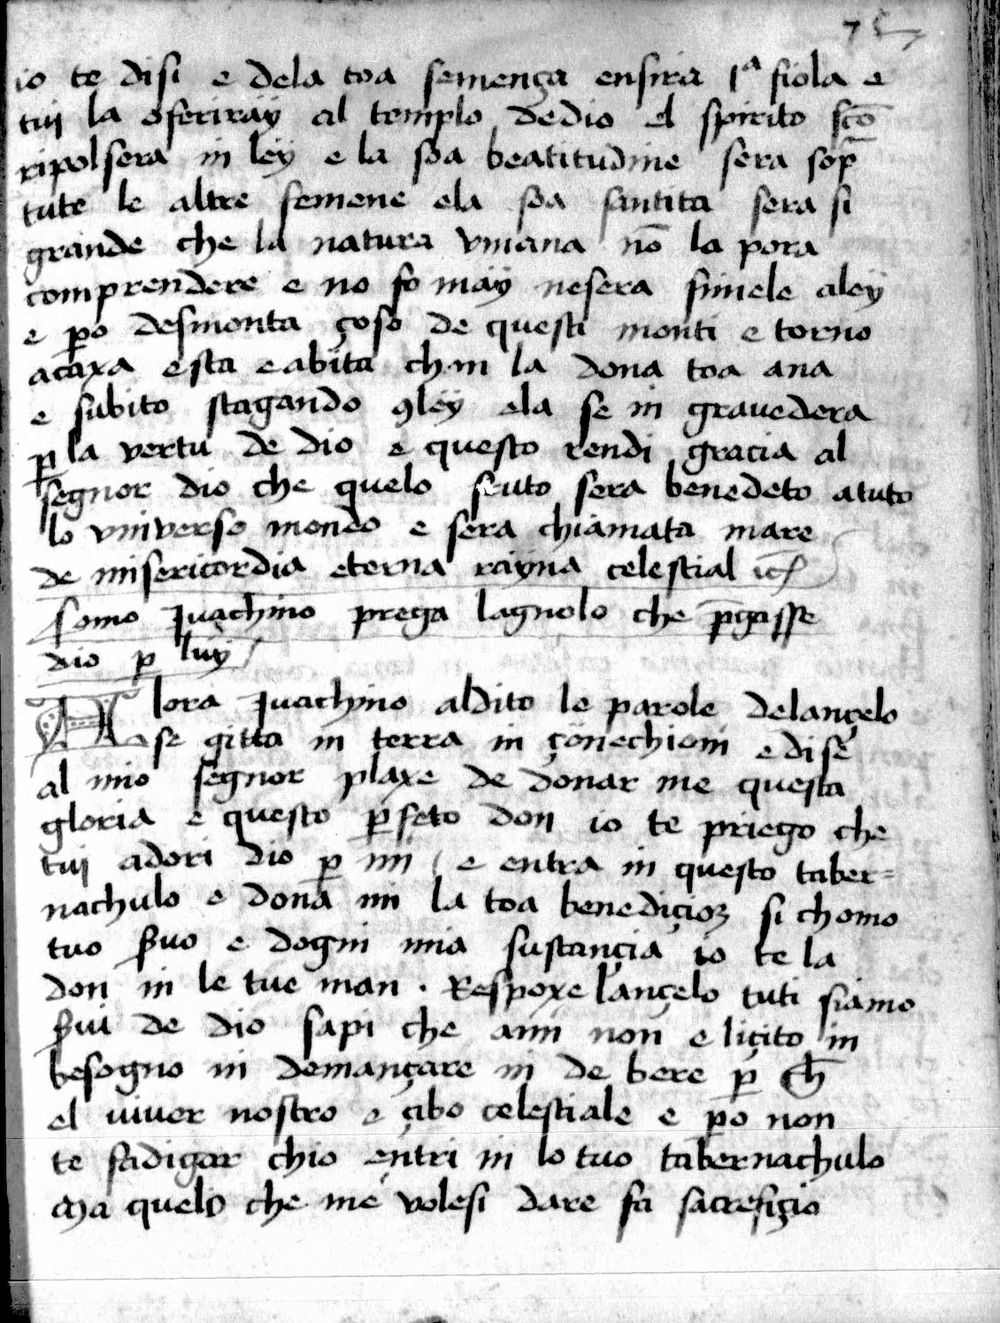 75
io te disi e dela toa semença ensira 1ª fiola e
tui la oferiray al templo de dio el spirito sc̄o
ripolsera in ley e la soa beatitudine sera sop̄
tute le altre femene e la soa santita sera si
grande che la natura vmana nō la pora
comprendere e no fo may ne sera simele a ley
e ꝑo desmonta çoso de questi monti e torno
a caxa e sta e abita chon la dona toa ana
e subito stagando ꝯ ley ela se in gravedera
ꝑ la vertu de dio e questo rendi gracia al
segnor dio che quelo fruto sera benedeto a tuto
lo vniverso mondo e sera chiamata mare
de misericordia eterna rayna celestial
Somo Juachino prega lagnolo che p̄gasse
dio ꝑ luy
Alora Juachino aldito le parole delançelo
se gitta in terra in çonechioni e dise
al mio segnor plaxe de donar me questa
gloria e questo ꝑfeto don io te priego che
tui adori dio ꝑ mi e entra in questo taber=
nachulo e dona mi la toa benediçioꝫ si chomo
tuo s̄uo e dogni mia sustançia io te la
don in le tue man . Respoxe lançelo tuti siamo
s̄ui de dio sapi che a mi non e liçito in
besogno ni demançare ni de bere ꝑ ch̄
el viver nostro e çibo celestiale e ꝑo non
te fadigar chio entri in lo tuo tabernachulo
Ma quelo che me volesi dare fa sacrefiçio